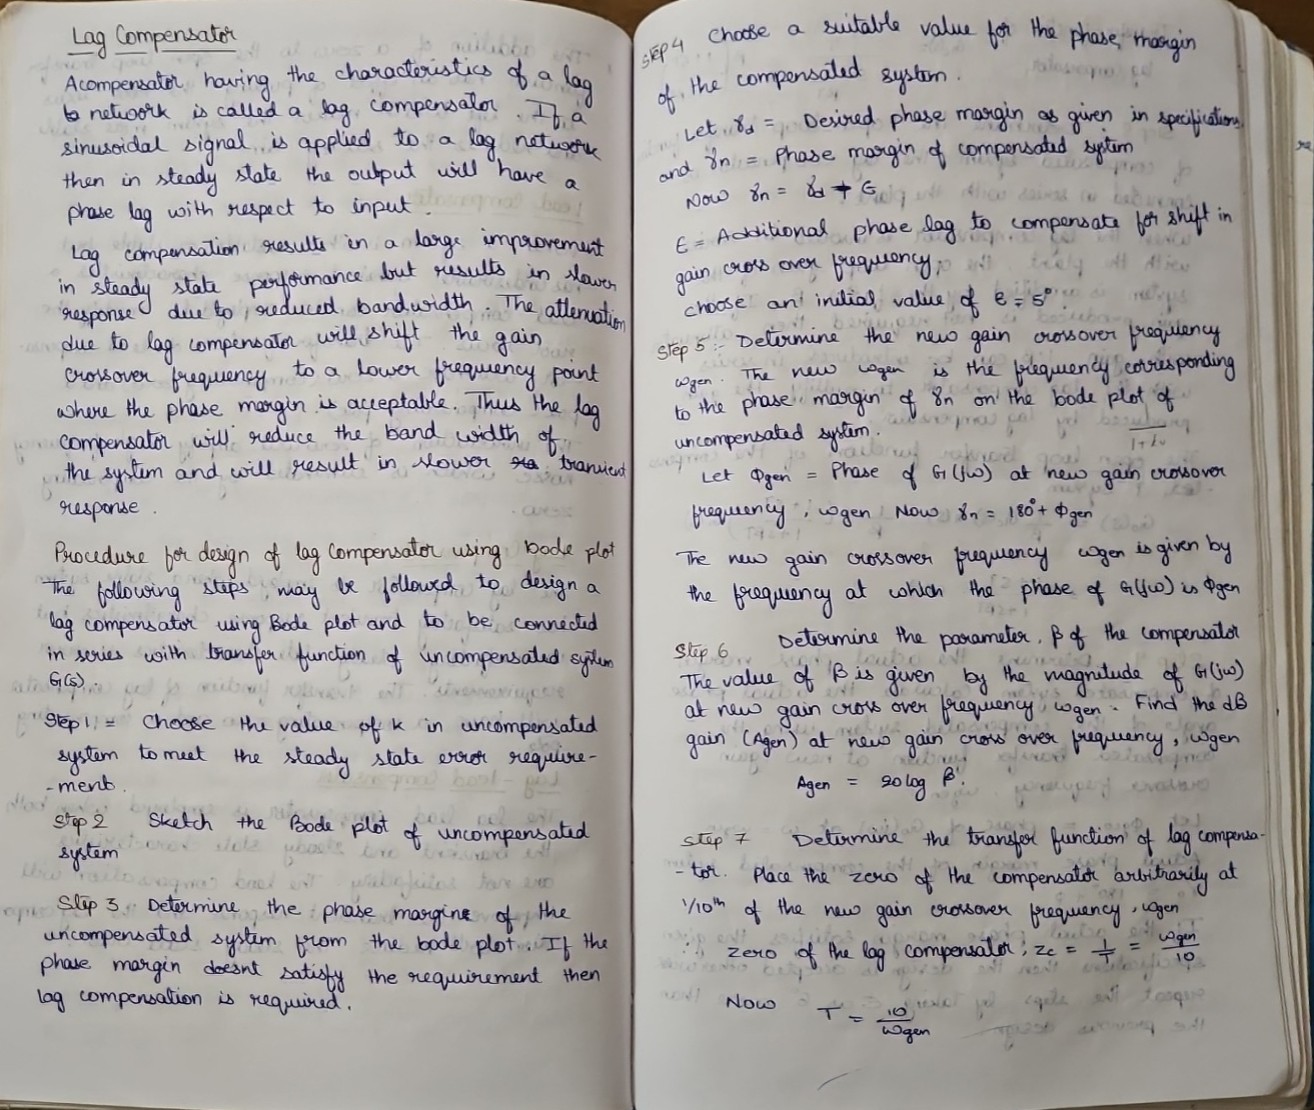 Lag Compensator
Acompensator having the characteristics of a lag
network is called a lag compensator. If a
sinusoidal signal is applied to a lag network
then in steady state the output will have a
phase lag with respect to input.
Lag compensation results in a large improvement
in steady state performance but results in slower
response due to reduced bandwidth. The attenuation
due to lag compensator will shift the gain
crossover frequency to a lower frequency point
where the phase margin is acceptable. Thus the lag
compensator will reduce the band width of
the system and will result in slower transient
response.
Procedure for design of lag compensator using bode plot
The following steps may be followed to design a
lag compensator using Bode plot and to be connected
in series with transfer function of uncompensated system
G(s).
Step 1 = Choose the value of k in uncompensated
system to meet the steady state error require-
-ment.
Step 2 Sketch the Bode plot of uncompensated
system
Step 3. Determine the phase margine of the
uncompensated system from the bode plot. If the
phase margin doesnt satisfy the requirement then
lag compensation is required.
Step 4 Choose a suitable value for the phase margin
of the compensated system.
Let γd = Desired phase margin as given in specifications
and γn = Phase margin of compensated system
Now γn = γd + ϵ
ϵ = Additional phase lag to compensate for shift in
gain cross over frequency,
choose an initial value of ϵ = 5°
Step 5:- Determine the new gain crossover frequency
ωgcn. The new ωgcn is the frequency corresponding
to the phase margin of γn on the bode plot of
uncompensated system.
Let Φgcn = Phase of G(jω) at new gain crossover
frequency, ωgcn Now γn = 180° + Φgcn
The new gain crossover frequency ωgcn is given by
the frequency at which the phase of G(jω) is Φgcn
Step 6 Determine the parameter, β of the compensator
The value of β is given by the magnitude of G(jω)
at new gain cross over frequency ωgcn. Find the dB
gain (Agcn) at new gain cross over frequency, ωgcn
Agcn = 20 log β.
Step 7 Determine the transfer function of lag compensa-
-tor. Place the zero of the compensator arbitrarily at
1/10th of the new gain crossover frequency, ωgcn
∴ zero of the lag compensator, zc = 1/T = ωgcn/10
Now T = 10/ωgcn